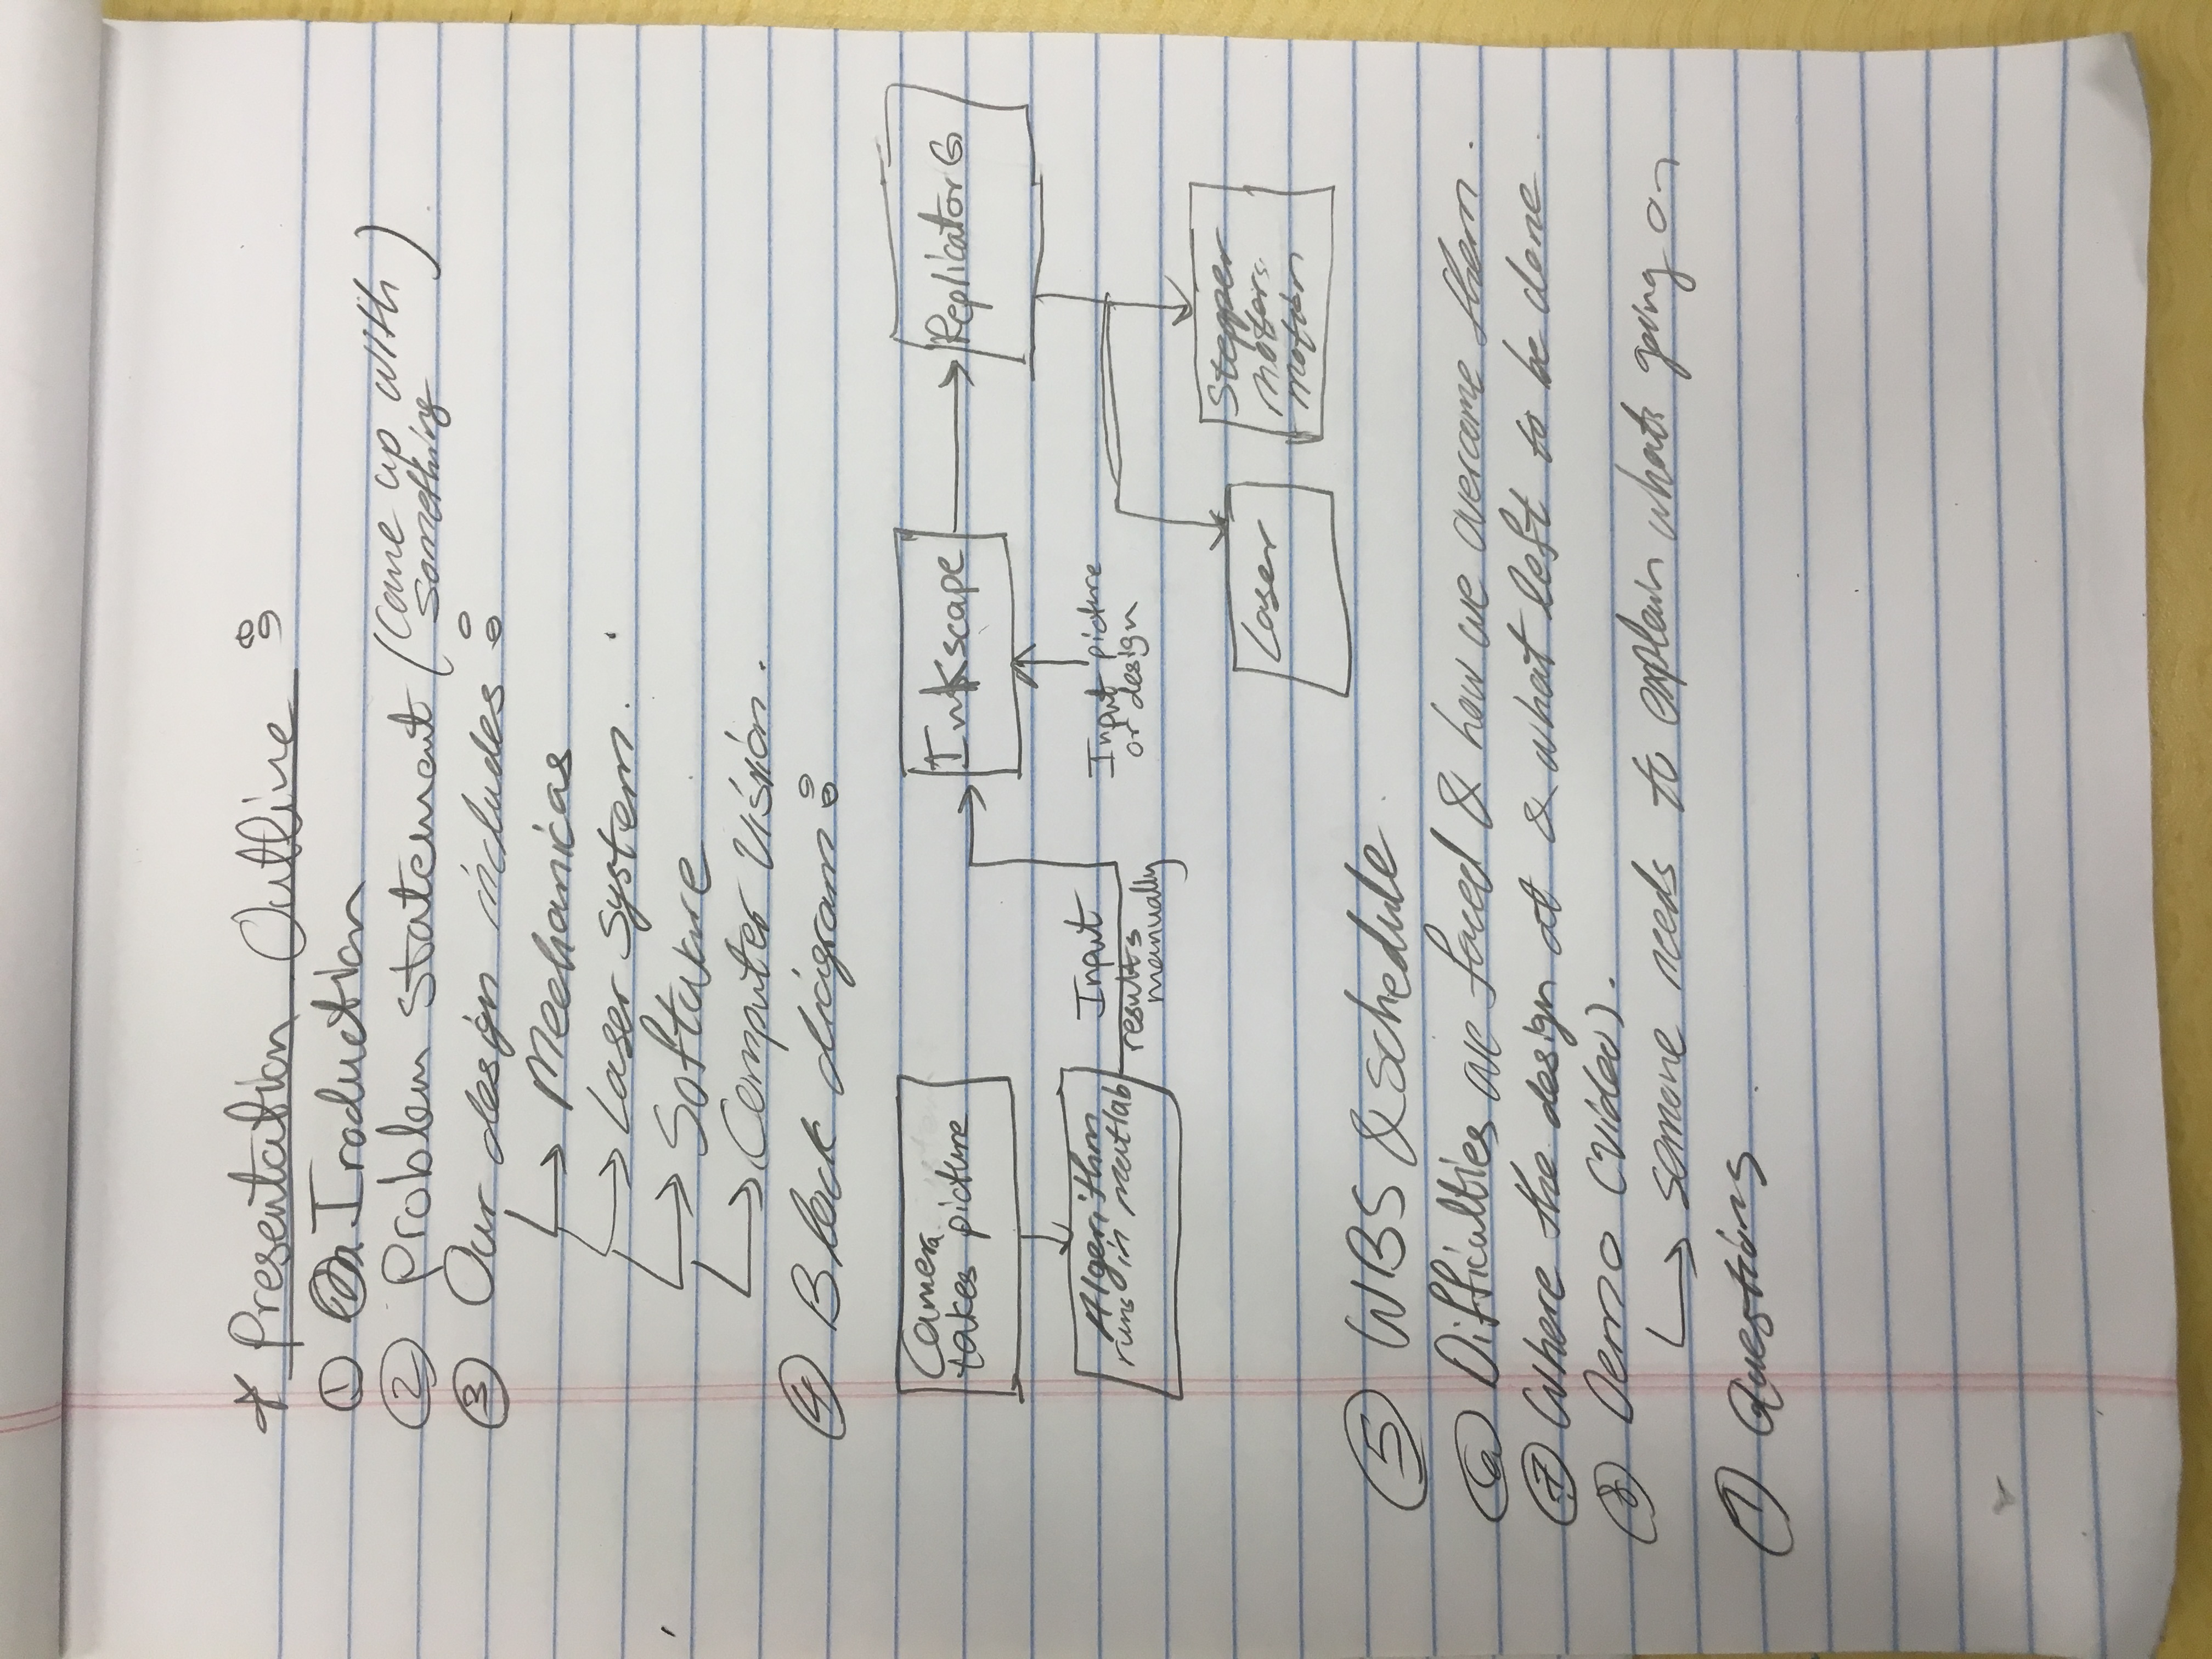 * Presentation Outline :
① Iroduction
② Problem statement (come up with
something)
③ Our design includes :
Mechanicas
Laser System.
Software
Computer Vision.
④ Block diagram :
Camera
takes picture
Inkscape
Replicator G
Algorithm
runs in matlab
Input
results
manually
Input picture
or design
Laser
Stepper
motors
motion
⑤ WBS & schedule
⑥ Difficulties we faced & how we overcome them.
⑦ Where the design at & what left to be done.
⑧ Demo (video).
somone needs to explain whats going on
Questions